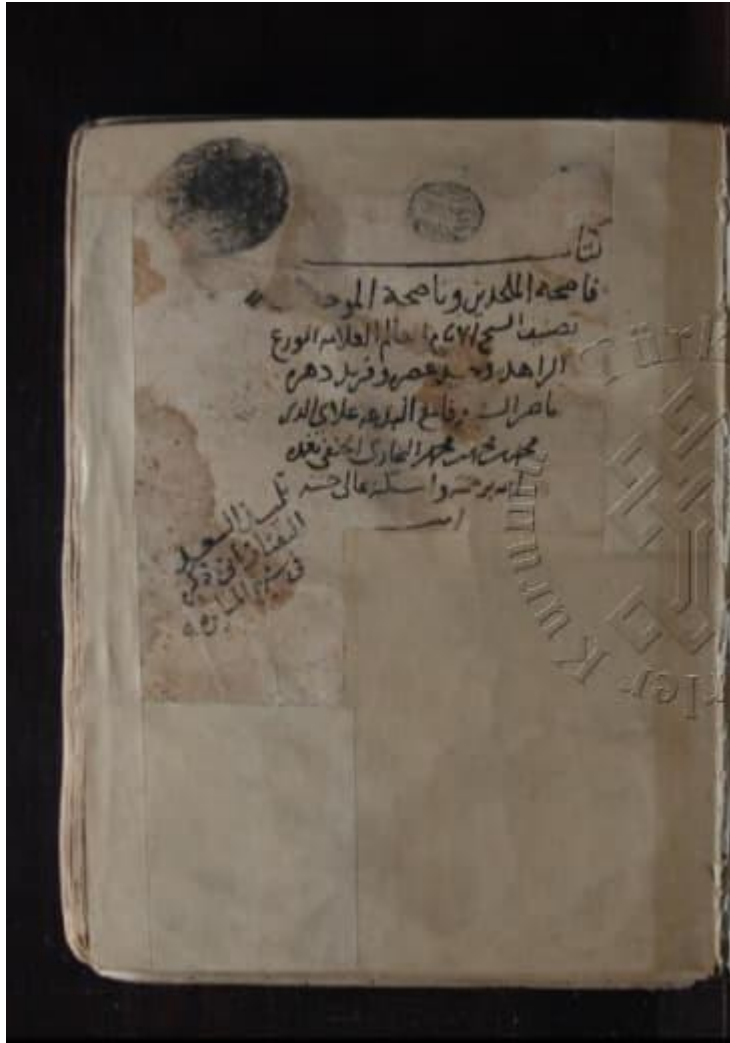 كتاب
فاضحة الملحدين وناصحة الموحدين
تصنيف الشيخ الامام العالم العلامه الورع
الزاهد وحيد عصره وفريد دهره
ناصر السنه وقامع البدعه علاى الدين
محمد بن محمد البخارى الحنفى تغمده
الله برحمته واسكنه عالى جنته
امين
تلميذ السعد
التفتازانى ذكره
فى